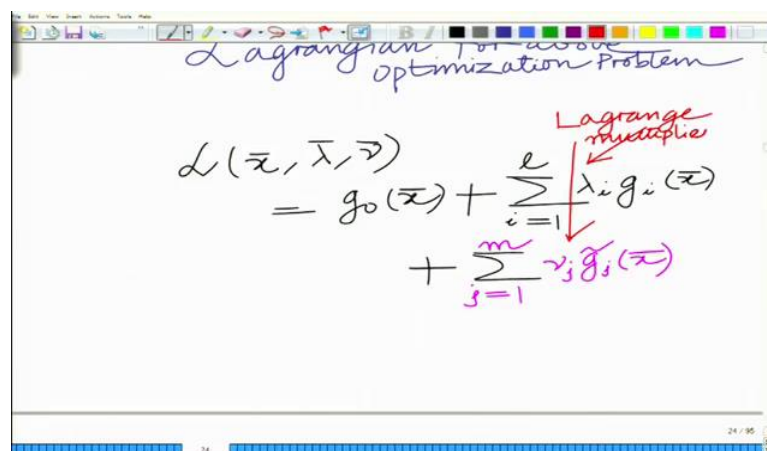 File Edit View Insert Actions Tools Help
B I
Lagrangian for above
Optimization Problem
Lagrange
multiplie
L(x̄, λ̄, ν̄)
= g₀(x̄) + Σ_{i=1}^{l} λᵢ gᵢ(x̄)
+ Σ_{j=1}^{m} νⱼ g̃ⱼ(x̄)
24 / 95
24